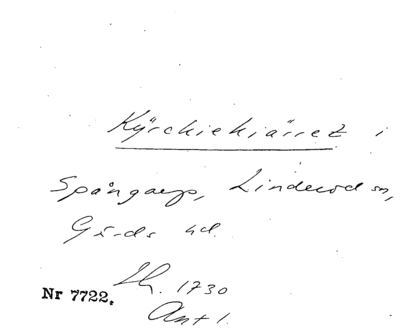 Kÿrchiekiärret i
Spångarp, Linderöd sn,
Gärds hd.
Lh. 1730
Nr 7722.
Ant 1.